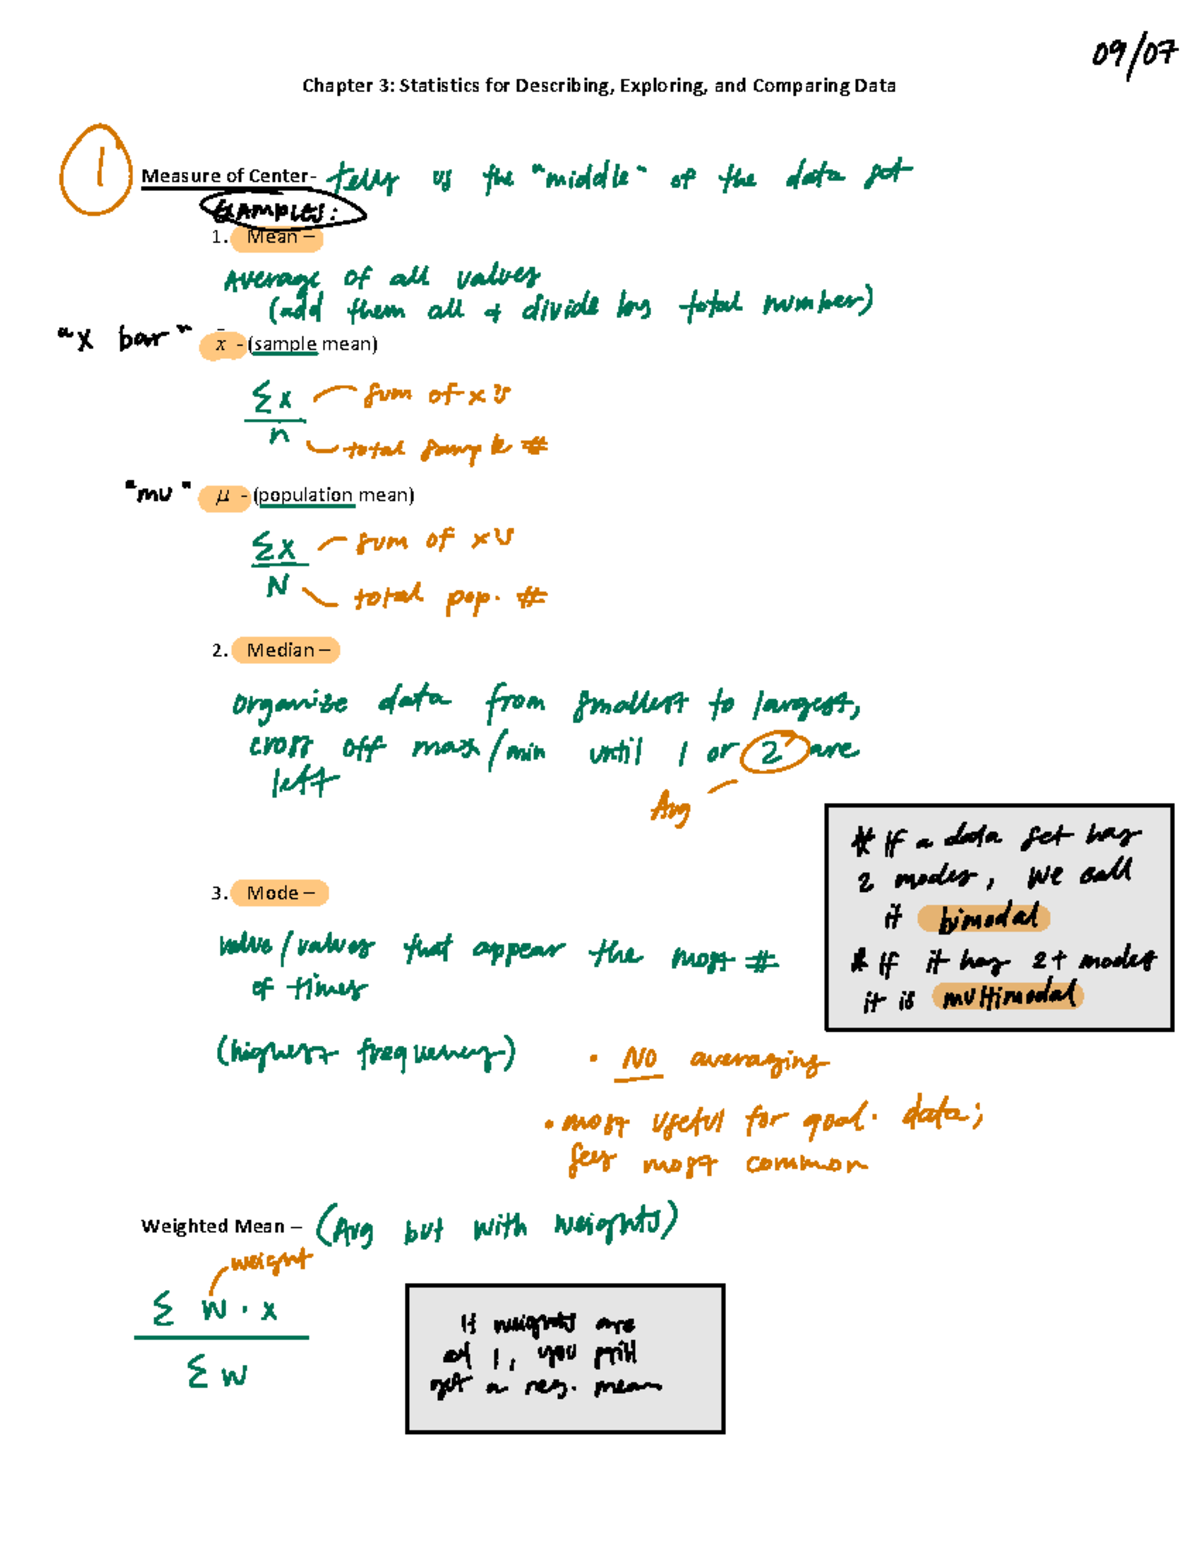 09/07
Chapter 3: Statistics for Describing, Exploring, and Comparing Data
1
Measure of Center- tells us the "middle" of the data set
EXAMPLES:
1. Mean –
Average of all values
(add them all & divide by total number)
"x bar" x̄ - (sample mean)
Σx sum of x's
n total sample #
"mu" μ - (population mean)
Σx sum of x's
N total pop. #
2. Median –
organize data from smallest to largest,
cross off max/min until 1 or 2 are
left
Avg
* If a data set has
2 modes, we call
it bimodal
* If it has 2+ modes
it is multimodal
3. Mode –
value/values that appear the most #
of times
(highest frequency)
• NO averaging
• most useful for qual. data;
sees most common
Weighted Mean – (Avg but with weights)
weight
Σ w · x
Σ w
If weights are
all 1, you still
get a reg. mean